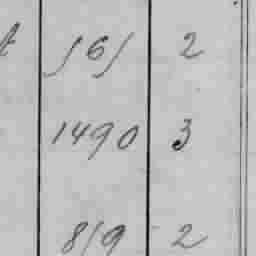 161 2
1490 3
819 2